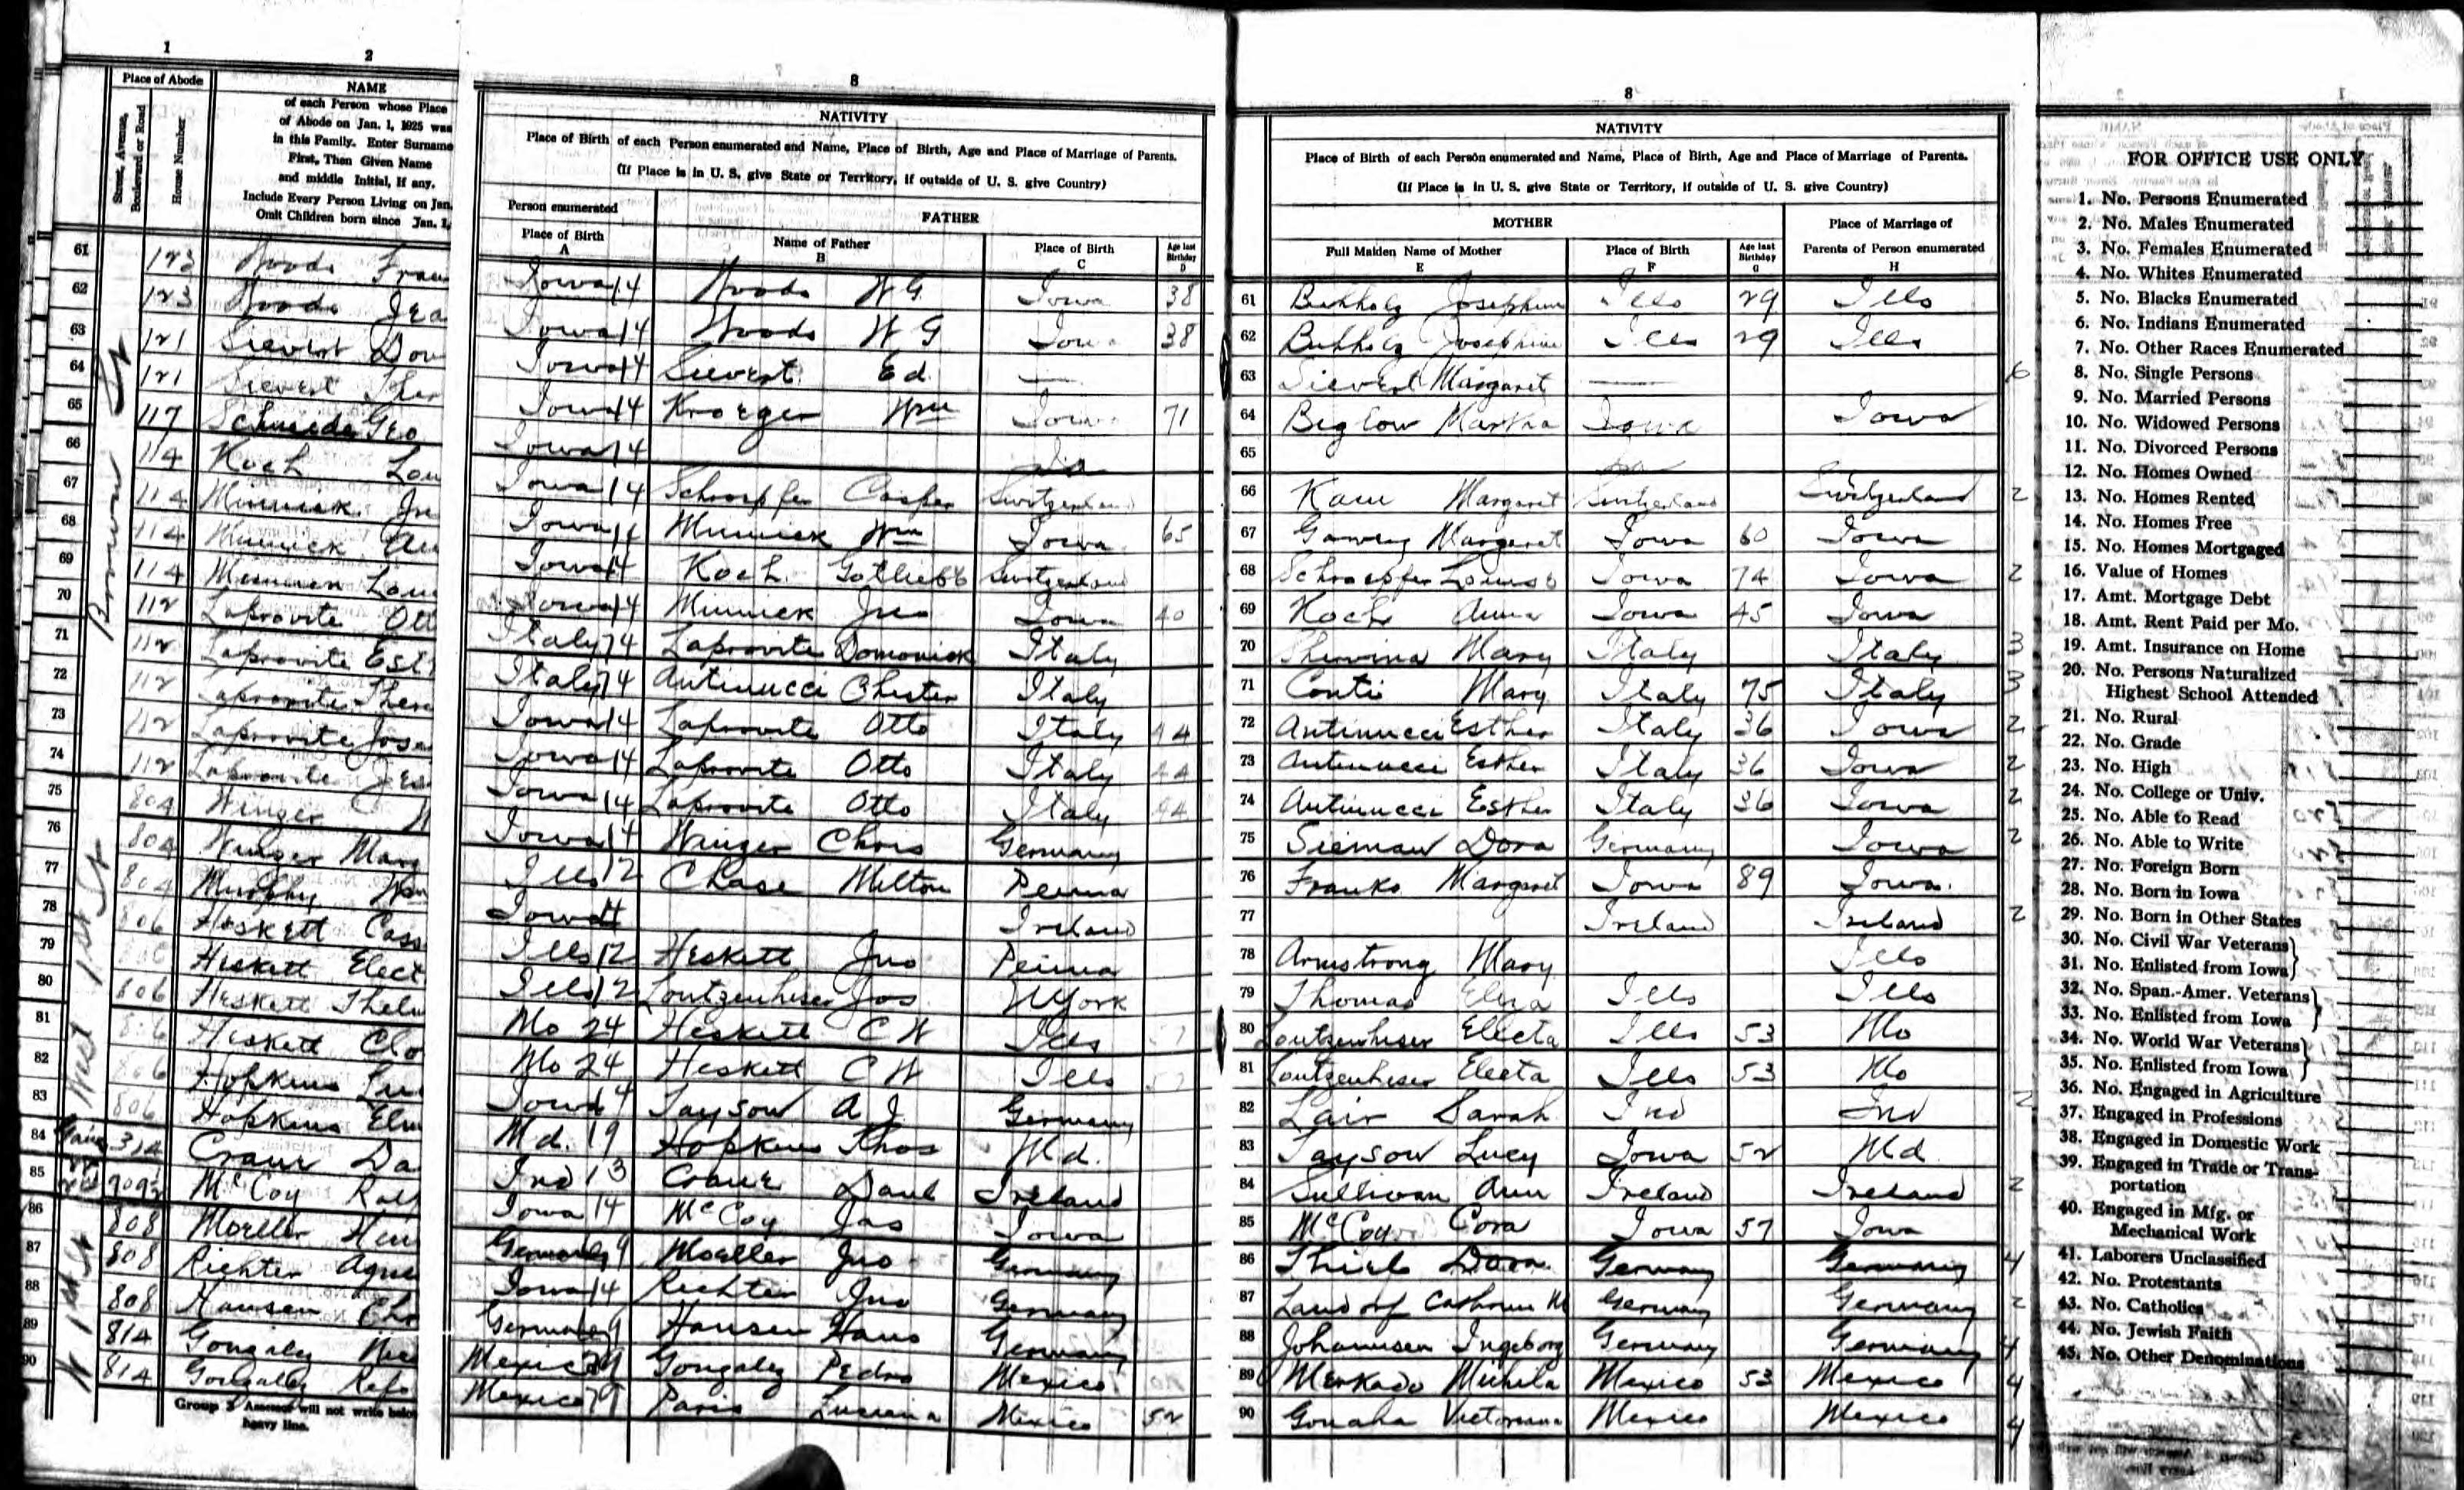 1
2
Place of Abode
Street, Avenue, Boulevard or Road
House Number
NAME
of each Person whose Place
of Abode on Jan. 1, 1925 was
in this Family. Enter Surname
First, Then Given Name
and middle Initial, if any.
Include Every Person Living on Jan.
Omit Children born since Jan. 1,
Brown St
61 123 Woods Fran
62 123 Woods Jea
63 121 Sievert Dor
64 121 Sievert
65 117 Schmeide Geo
66 114 Koch Lou
67 114 Minnick Jn
68 114 Minnick
69 114 Lou
70 112 Laprovite Ott
71 112 Laprovite Est
72 112 Laprovite Ther
73 112 Laprovite Jose
74 112 Laprovite
West 1st St
75 804 Winger
76 804 Winger Marg
77 804 Murphy
78 806 Heskett Cass
79 806 Heskett Elect
80 806 Heskett Thelm
81 806 Heskett Clo
82 806 Hopkins Lu
83 806 Hopkins Elm
84 314 Crane Da
85 McCoy Ralp
W 1st St
86 808 Moeller Hen
87 808 Richter Agne
88 808 Hansen Chr
89 814 Gonzalez
90 814 Gonzalez Refo
Group 3 Assessor will not write below
heavy line.
8
NATIVITY
Place of Birth of each Person enumerated and Name, Place of Birth, Age and Place of Marriage of Parents.
(If Place is in U. S. give State or Territory, if outside of U. S. give Country)
Person enumerated
FATHER
Place of Birth
A
Name of Father
B
Place of Birth
C
Age last Birthday
D
Iowa 14 Woods W G Iowa 38
Iowa 14 Woods W G Iowa 38
Iowa 14 Sievert Ed —
Iowa 14 Kroeger Wm Iowa 71
Iowa 14
Iowa 14 Schroepfer Casper Switzerland
Iowa 14 Minnick Wm Iowa 65
Iowa 14 Koch Gotlieb Switzerland
Iowa 14 Minnick Jno Iowa 40
Italy 74 Laprovite Domonick Italy
Italy 74 Antinucci Chester Italy
Iowa 14 Laprovite Otto Italy 44
Iowa 14 Laprovite Otto Italy 44
Iowa 14 Laprovite Otto Italy 44
Iowa 14 Winger Chris Germany
Ills 12 Chase Milton Penna
Iowa 14 Ireland
Ills 12 Heskett Jno Penna
Ills 12 Loutzenhiser Jos N York
Mo 24 Heskett C W Ills
Mo 24 Heskett C W Ills
Iowa 14 Jayson A J Germany
Md. 19 Hopkins Thos Md.
Ind 13 Crane Danl Ireland
Iowa 14 McCoy Jas Iowa
Germany Moeller Jno Germany
Iowa 14 Richter Jno Germany
Germany Hansen Hans Germany
Mexico Gonzalez Pedro Mexico
Mexico Paris Luciana Mexico 52
8
NATIVITY
Place of Birth of each Person enumerated and Name, Place of Birth, Age and Place of Marriage of Parents.
(If Place is in U. S. give State or Territory, if outside of U. S. give Country)
MOTHER
Place of Marriage of
Parents of Person enumerated
H
Full Maiden Name of Mother
E
Place of Birth
F
Age last Birthday
G
61 Buhholz Josephine Ills 29 Ills
62 Buhholz Josephine Ills 29 Ills
63 Sievert Margaret — 6
64 Biglow Martha Iowa Iowa
65
66 Kam Margaret Switzerland Switzerland 2
67 Margaret Iowa 60 Iowa
68 Schroepfer Louise Iowa 74 Iowa 2
69 Koch Anna Iowa 45 Iowa
70 Mary Italy Italy 3
71 Conti Mary Italy 75 Italy 3
72 Antinucci Esther Italy 36 Iowa 2
73 Antinucci Esther Italy 36 Iowa 2
74 Antinucci Esther Italy 36 Iowa 2
75 Sieman Dora Germany Iowa 2
76 Franks Margaret Iowa 89 Iowa.
77 Ireland Ireland 2
78 Armstrong Mary Ills
79 Thomas Eliza Ills Ills
80 Loutzenhiser Electa Ills 53 Mo
81 Loutzenhiser Electa Ills 53 Mo
82 Lair Sarah Ind Ind 2
83 Jayson Lucy Iowa 52 Md
84 Sullivan Ann Ireland Ireland 2
85 McCoy Cora Iowa 57 Iowa
86 Thiel Dora Germany Germany 4
87 Landorf Cathrine M Germany Germany 2
88 Johannsen Ingeborg Germany Germany 4
89 Merkado Michela Mexico 53 Mexico 4
90 Victoriana Mexico Mexico 4
FOR OFFICE USE ONLY
1. No. Persons Enumerated
2. No. Males Enumerated
3. No. Females Enumerated
4. No. Whites Enumerated
5. No. Blacks Enumerated
6. No. Indians Enumerated
7. No. Other Races Enumerated
8. No. Single Persons
9. No. Married Persons
10. No. Widowed Persons
11. No. Divorced Persons
12. No. Homes Owned
13. No. Homes Rented
14. No. Homes Free
15. No. Homes Mortgaged
16. Value of Homes
17. Amt. Mortgage Debt
18. Amt. Rent Paid per Mo.
19. Amt. Insurance on Home
20. No. Persons Naturalized
Highest School Attended
21. No. Rural
22. No. Grade
23. No. High
24. No. College or Univ.
25. No. Able to Read
26. No. Able to Write
27. No. Foreign Born
28. No. Born in Iowa
29. No. Born in Other States
30. No. Civil War Veterans
31. No. Enlisted from Iowa
32. No. Span.-Amer. Veterans
33. No. Enlisted from Iowa
34. No. World War Veterans
35. No. Enlisted from Iowa
36. No. Engaged in Agriculture
37. Engaged in Professions
38. Engaged in Domestic Work
39. Engaged in Trade or Trans-
portation
40. Engaged in Mfg. or
Mechanical Work
41. Laborers Unclassified
42. No. Protestants
43. No. Catholics
44. No. Jewish Faith
45. No. Other Denominations